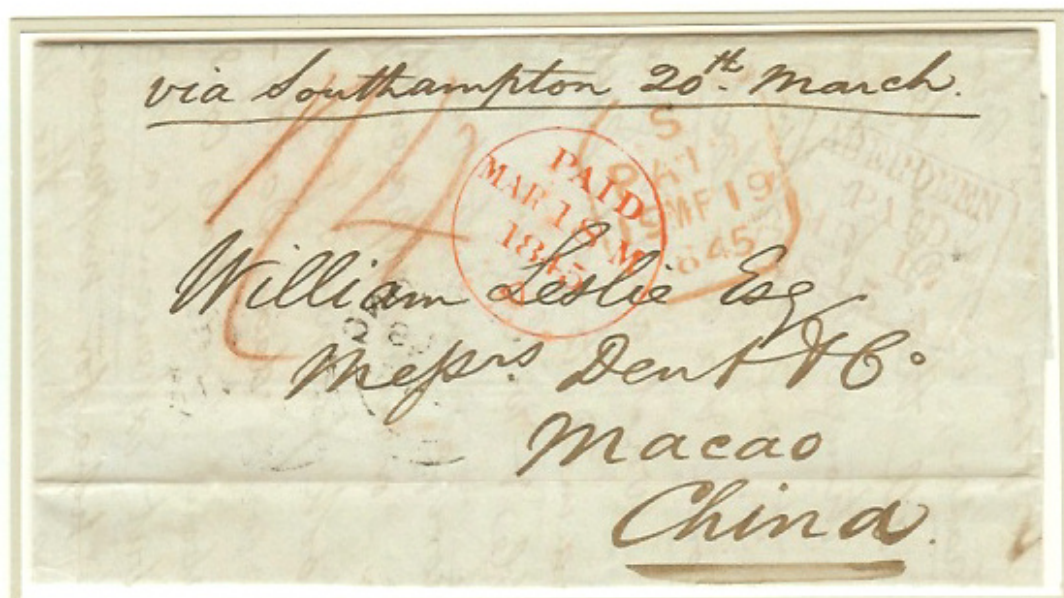 via Southampton 20th. March.
1/4
PAID
MAR 18 M
1845
S
PAID
19 MR 19
1845
ABERDEEN
PAID
William Leslie Esq
Messrs. Dent & Co.
Macao
China.